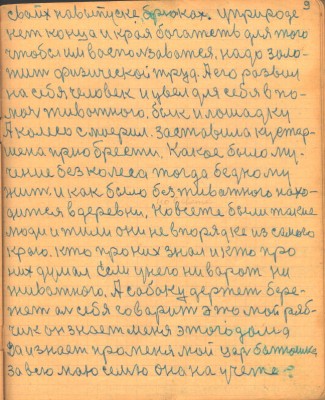 9
своих навыпуске брюках. У природе
нет конца и края богатеть для того
чтобы им воспользоватся, надо зало-
жит физической труд. А его развил
на себя человек и увел для себя в по-
мач животного, бык и лошадку
А колесо смаерил. заставила кустар-
мена приобрести. Какое было му-
чение без колеса тогда бедному
жит. и как было без животного нахо-
дится в деревни, Ковсете были такие
люди и жили они не вторядке из самого
краю. кто про них знал и кто про
них думал сели у него ни варот ни
животного. А собаку держет бере-
жет ал себя говарит это мой ряб-
чик он знает меня этого дама
Да и знает про меня мой цар батюшка
за всю маю семью она на учете